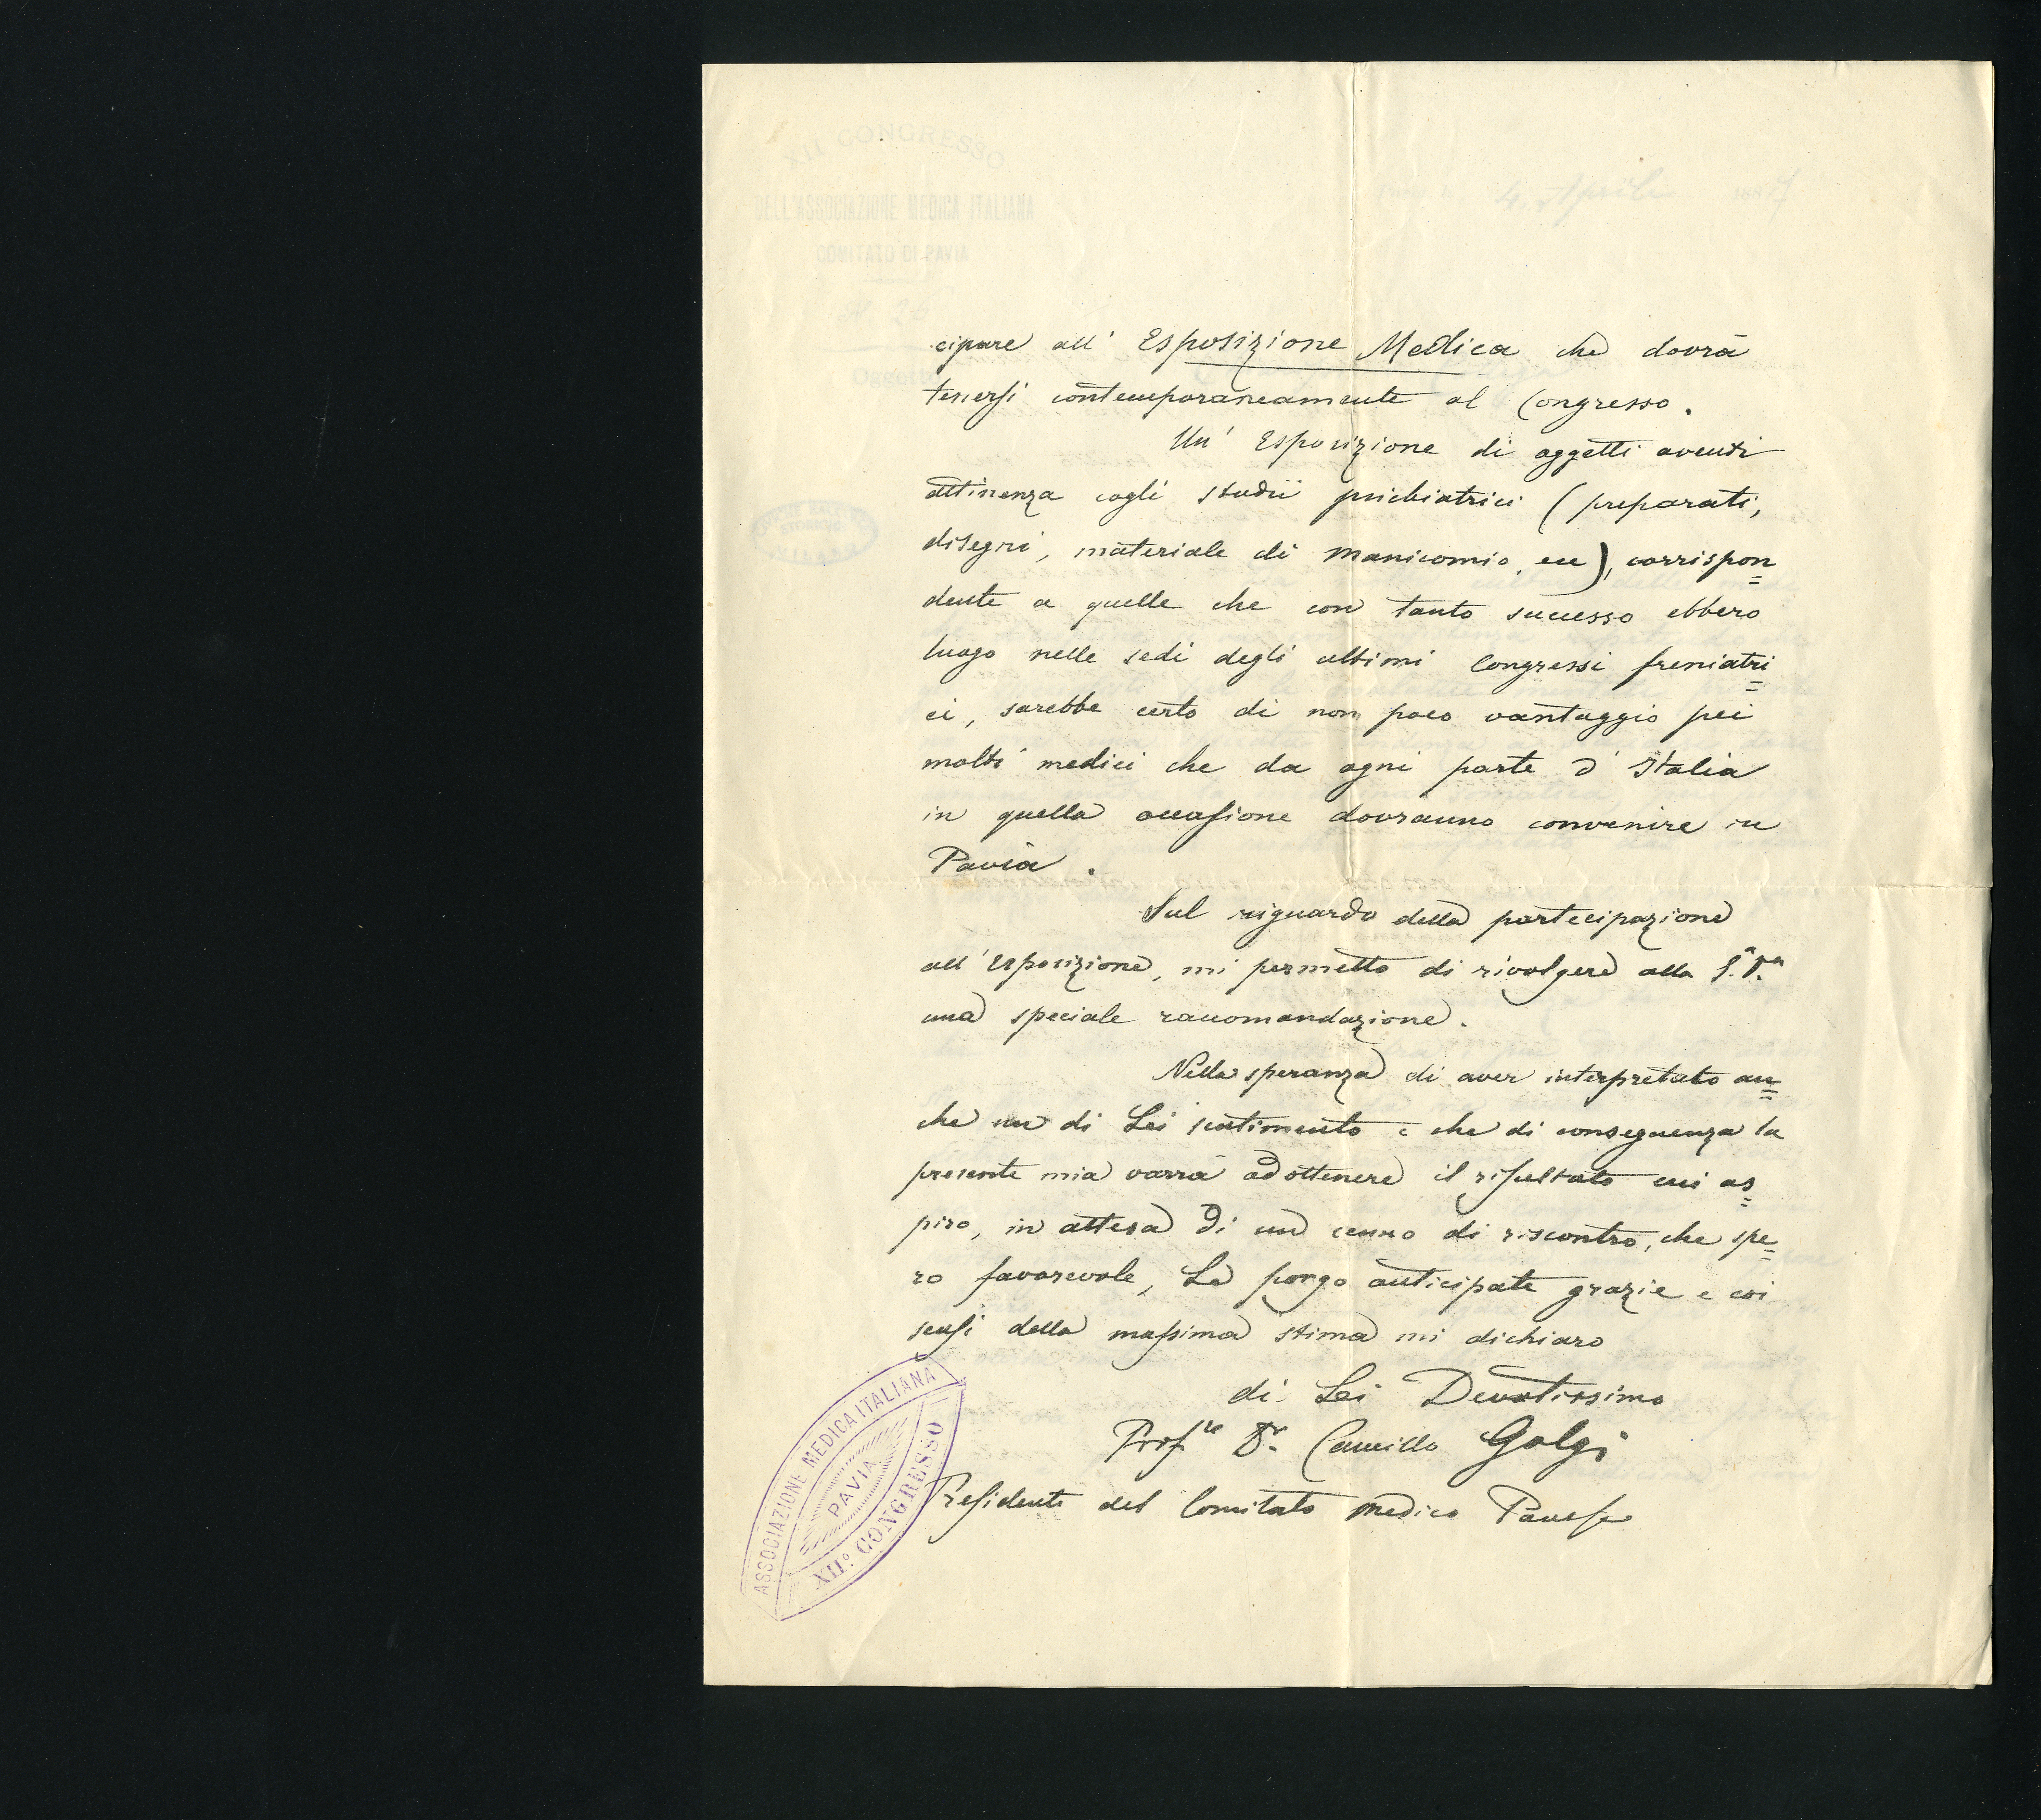 XII CONGRESSO
DELL'ASSOCIAZIONE MEDICA ITALIANA
COMITATO DI PAVIA
N. 26
4. Aprile 1887
Oggetto
cipare all' Esposizione Medica che dovrà
tenersi contemporaneamente al Congresso.
Un' Esposizione di oggetti aventi
attinenza cogli studii psichiatrici (preparati,
disegni, materiale di manicomio, ecc), corrispon=
dente a quelle che con tanto successo ebbero
luogo nelle sedi degli ultimi Congressi freniatri=
ci, sarebbe certo di non poco vantaggio pei
molti medici che da ogni parte d' Italia
in quella occasione dovranno convenire in
Pavia.
Sul riguardo della partecipazione
all' Esposizione, mi permetto di rivolgere alla S.V.
una speciale raccomandazione.
Nella speranza di aver interpretato an=
che un di Lei sentimento e che di conseguenza la
presente mia varrà ad ottenere il risultato cui as=
piro, in attesa di un cenno di riscontro, che spe=
ro favorevole, Le porgo anticipate grazie e coi
sensi della massima stima mi dichiaro
di Lei Devotissimo
Prof.re Dr. Camillo Golgi
Presidente del Comitato Medico Pavese
ASSOCIAZIONE MEDICA ITALIANA
PAVIA
XII.° CONGRESSO